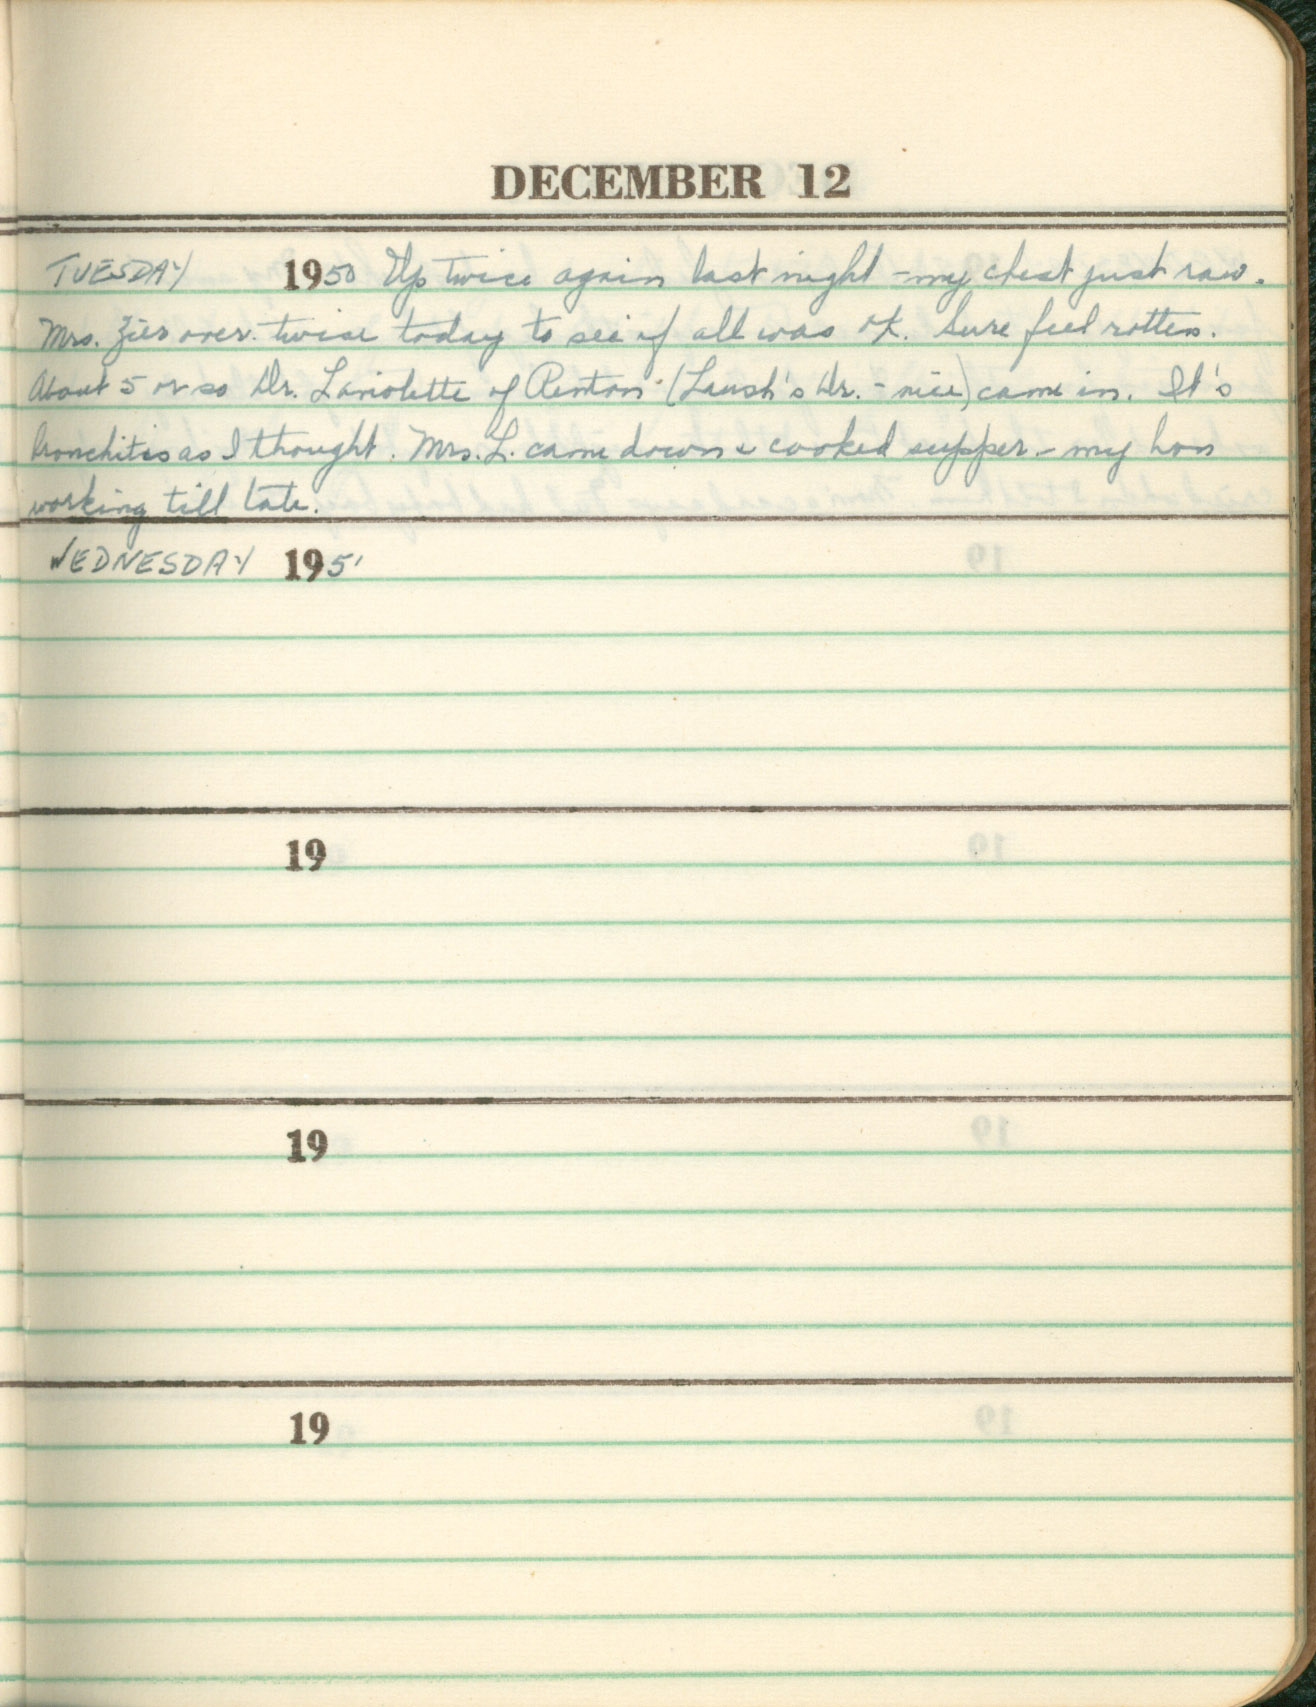 DECEMBER 12
TUESDAY 1950 Up twice again last night - my chest just raw.
Mrs. Zier over twice today to see if all was ok. Sure feel rotten.
About 5 or so Dr. of Renton ( Dr. - nice) came in. It's
bronchitis as I thought. Mrs. L. came down & cooked supper - my hon
working till late.
WEDNESDAY 1951
19
19
19